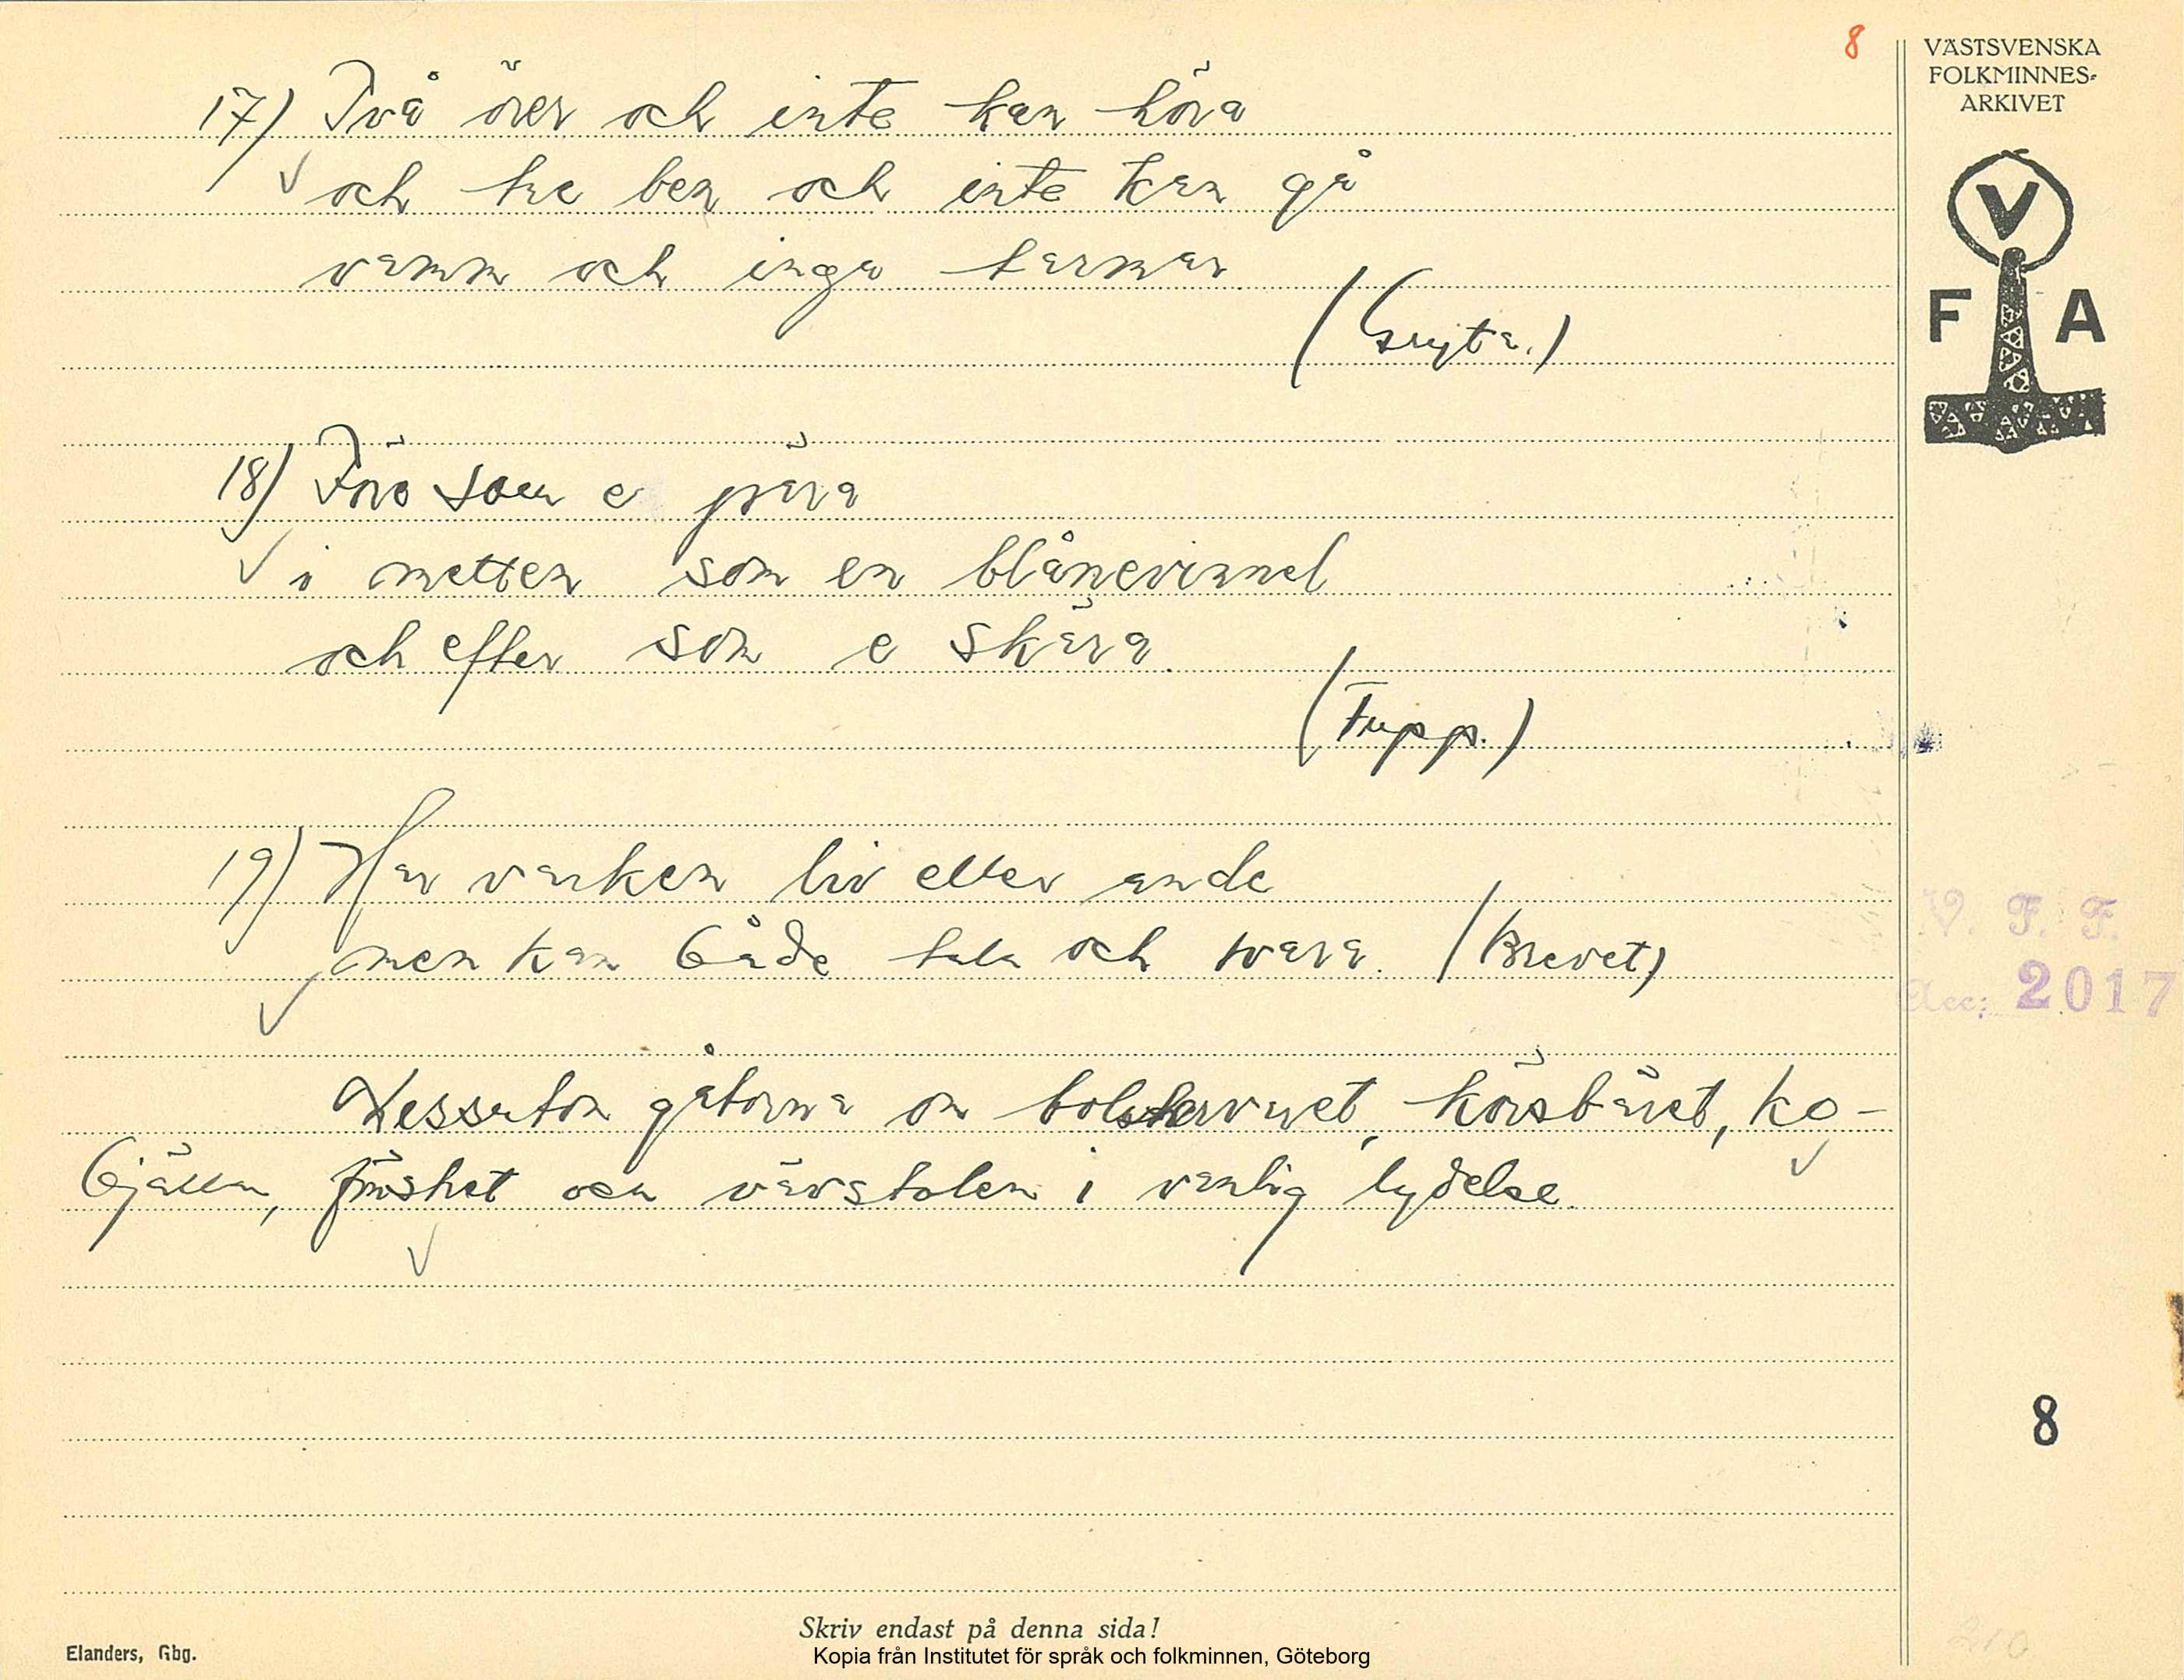 8
VÄSTSVENSKA
FOLKMINNES-
ARKIVET
V
F A
17) Två örer och inte kan höra
och tre ben och inte kan gå
vamm och inga tarmar
(Gryta.)
18) Före som e pära
i metten som en blånevinnel
och efter som e skära.
(Tupp.)
19) Har varken liv eller ande
men kan både tala och svara. (Brevet)
V. F. F.
Acc: 2017
Dessutom gåtorna om bolstervaret, körsbäret, ko-
bjällan, frösket och vävstolen i vanlig lydelse.
8
Skriv endast på denna sida!
Elanders, Gbg.
Kopia från Institutet för språk och folkminnen, Göteborg